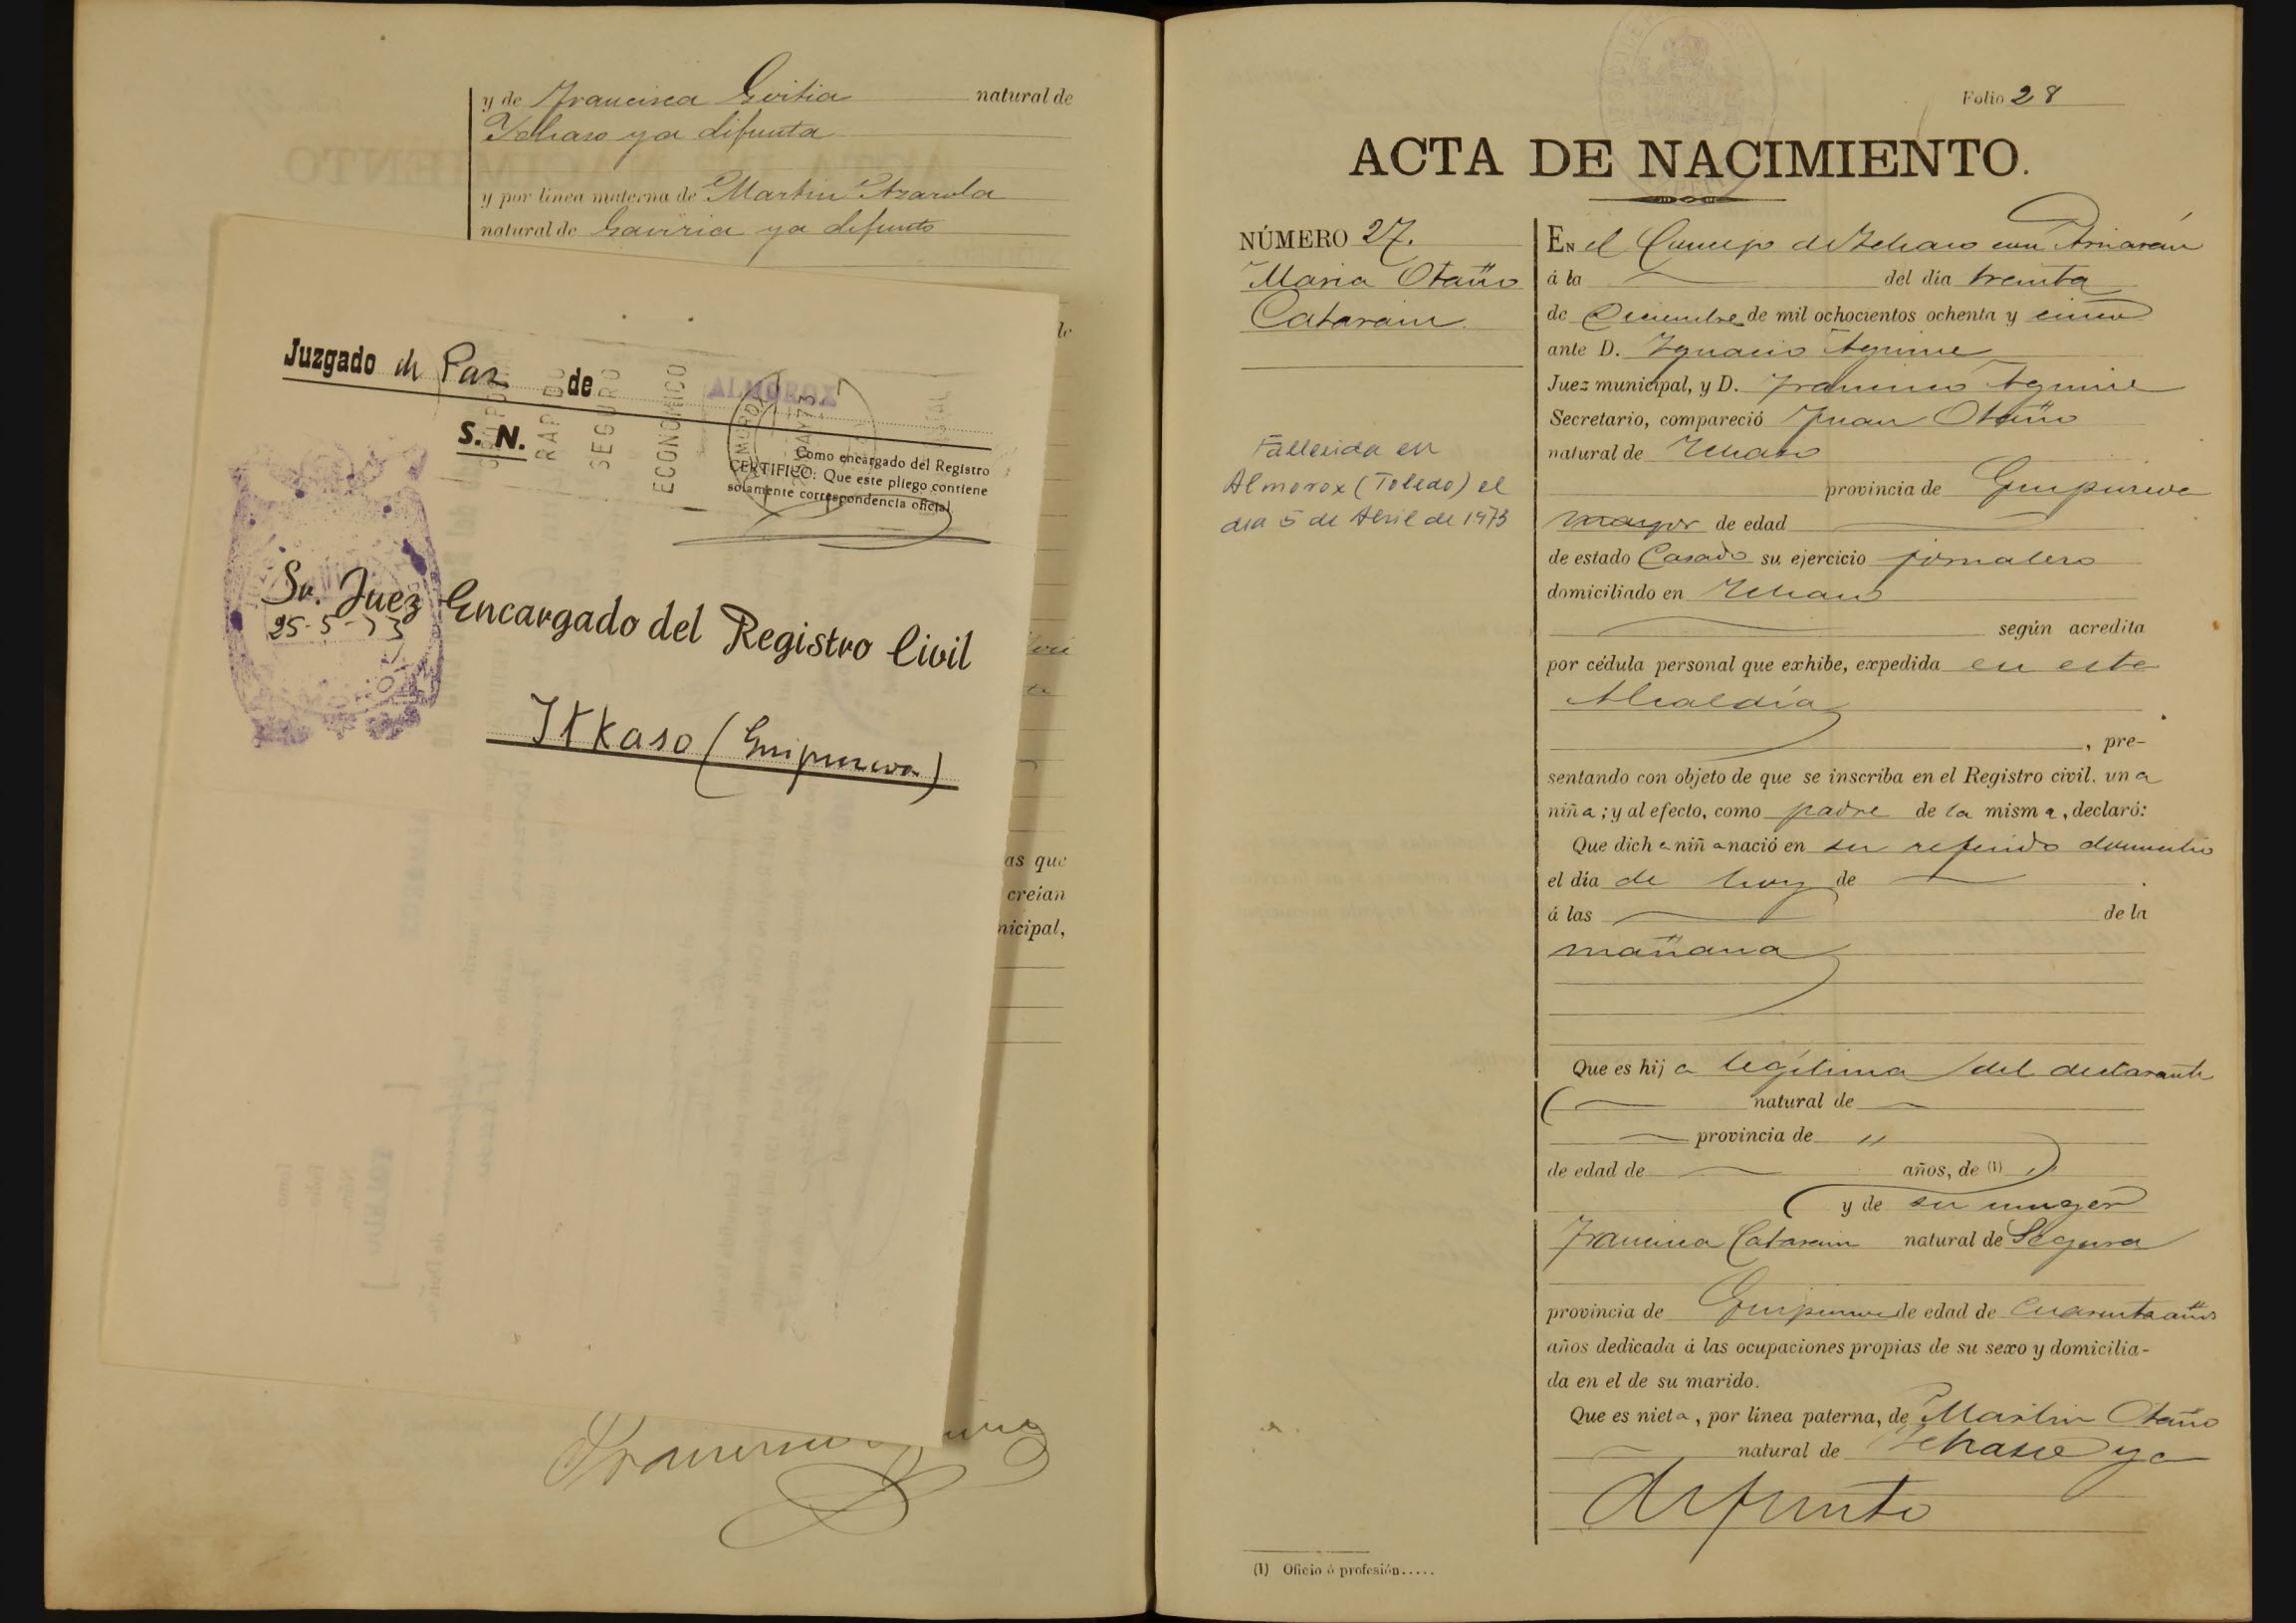 y de Francisca Goitia natural de
Ychaso ya difunta
y por línea materna de Martin Azarola
natural de Gaviria ya difunto
Juzgado de Paz de ALMOROX
S. N.
RAPIDO
SEGURO
ECONOMICO
Como encargado del Registro
CERTIFICO: Que este pliego contiene
solamente correspondencia oficial.
Sr. Juez Encargado del Registro Civil
25-5-73
Itkaso (Guipuzcoa)
as que
creían
nicipal,
Folio 28
ACTA DE NACIMIENTO.
NÚMERO 27.
Maria Otaño
Catarain
Fallecida en
Almorox (Toledo) el
dia 5 de Abril de 1973
En el Concejo de Ychaso con Arriarán
á la del día treinta
de Diciembre de mil ochocientos ochenta y cinco
ante D. Ygnacio Aguirre
Juez municipal, y D. Francisco Aguirre
Secretario, compareció Juan Otaño
natural de Ychaso
provincia de Guipuzcoa
mayor de edad
de estado Casado su ejercicio jornalero
domiciliado en Ychaso
según acredita
por cédula personal que exhibe, expedida en esta
Alcaldía
, pre-
sentando con objeto de que se inscriba en el Registro civil, una
niña; y al efecto, como padre de la misma, declaró:
Que dicha niña nació en su referido domicilio
el día de hoy de
á las de la
mañana
Que es hija legítima del declarante
natural de
provincia de "
de edad de años, de (1) "
y de su muger
Francisca Catarain natural de Segura
provincia de Guipuzcoa de edad de cuarenta años
años dedicada á las ocupaciones propias de su sexo y domicilia-
da en el de su marido.
Que es nieta, por línea paterna, de Martin Otaño
natural de Ychaso ya
difunto
(1) Oficio ó profesión.....